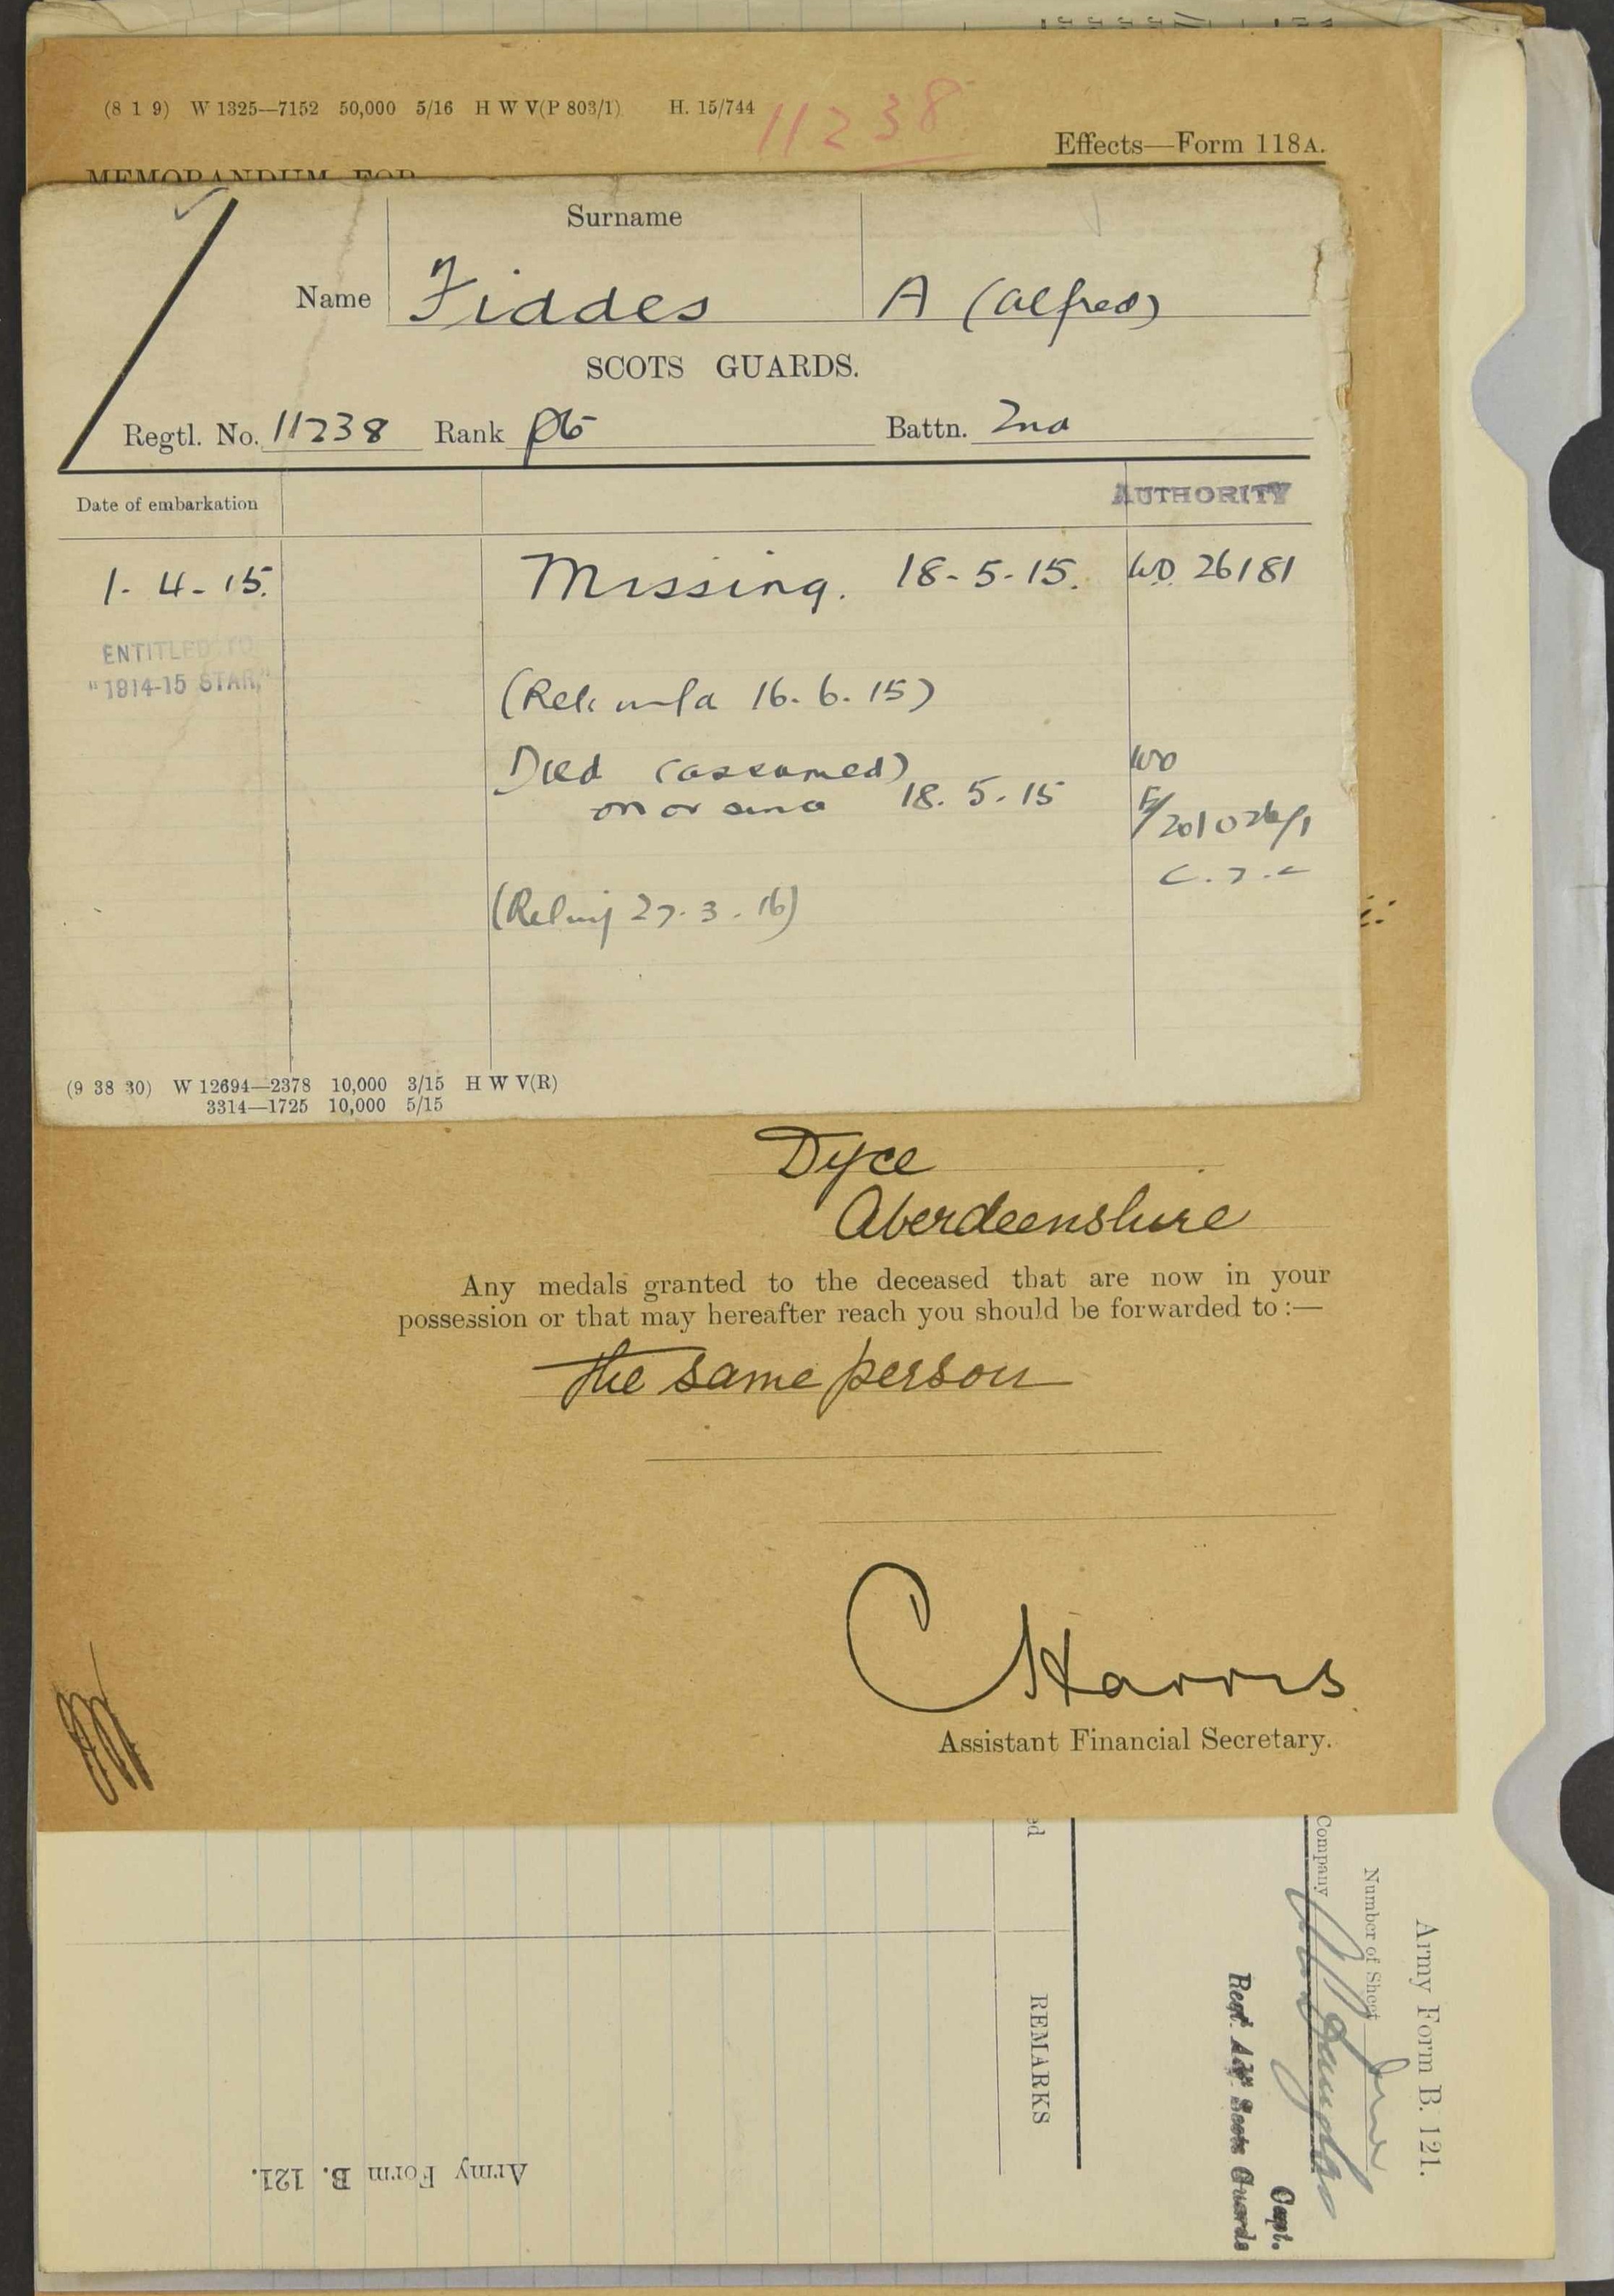 (8 1 9) W 1325—7152 50,000 5/16 H W V(P 803/1) H. 15/744
11238
Effects—Form 118A.
MEMORANDUM FOR
Surname
Name Fiddes A (Alfred)
SCOTS GUARDS.
Regtl. No. 11238 Rank Pte Battn. 2nd
Date of embarkation
AUTHORITY
1-4-15. Missing. 18-5-15. WO. 26181
ENTITLED TO
"1914-15 STAR,"
16.6.15)
Died (assumed) WO
on or since 18.5.15
27.3.16)
(9 38 30) W 12694—2378 10,000 3/15 H W V(R)
3314—1725 10,000 5/15
Dyce
Aberdeenshire
Any medals granted to the deceased that are now in your
possession or that may hereafter reach you should be forwarded to :—
the same person
C Harris
Assistant Financial Secretary.
Army Form B. 121.
Number of Sheet
Company
Capt.
Regt. Adjt. Scots Guards
REMARKS
Army Form B. 121.